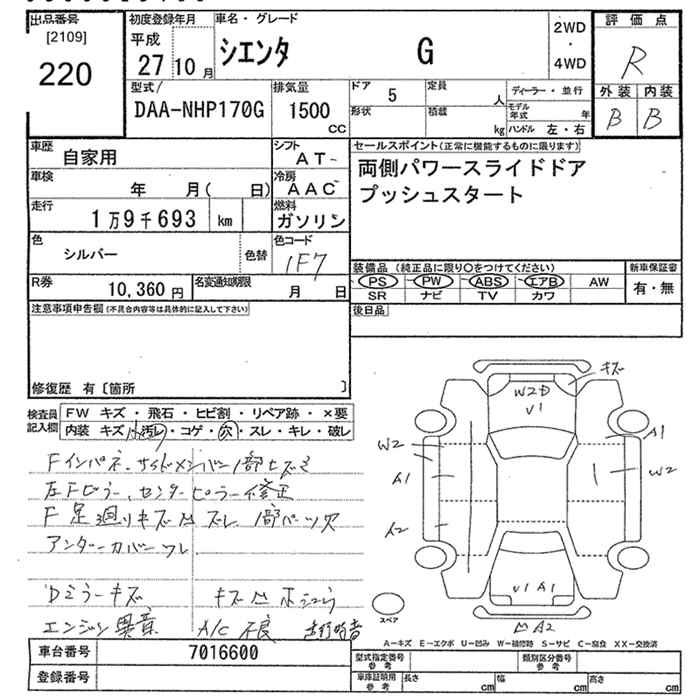 出品番号
[2109]
220
初度登録年月
平成
27 10 月
車名・グレード
シエンタ G
2WD
・
4WD
評価点
R
外装 内装
B B
型式/
DAA-NHP170G
排気量
1500
CC
ドア 5
定員 人
形状
積載 kg
ディーラー・並行
モデル年式 年
ハンドル 左・右
車歴 自家用
シフト AT-
車検 年 月( 日)
冷房 AAC
走行 1万9千693 km
燃料 ガソリン
色 シルバー 色替
色コード 1F7
R券 10,360 円
名変通知期限 月 日
セールスポイント(正常に機能するものに限ります)
両側パワースライドドア
プッシュスタート
装備品 (純正品に限り○をつけてください)
PS PW ABS エアB AW
SR ナビ TV カワ
新車保証書
有・無
後日品
注意事項申告欄(不具合内容等は具体的に記入して下さい)
修復歴 有〔箇所 〕
検査員記入欄
FW キズ・飛石・ヒビ割・リペア跡・×要
内装 キズ 小汚レ・コゲ・穴・スレ・キレ・破レ
Fインパネ、サイドメンバー1部ヒズミ
左Fピラー、センターピラー修正
F足廻りキズ凹ズレ 1部パーツ欠
アンダーカバーワレ
Dミラーキズ
エンジン異音 A/C不良
キズ
W2D
V1
W2
A1
A2
A1
W2
V1 A1
凹A2
スペア
A-キズ E-エクボ U-凹み W-補修跡 S-サビ C-腐食 XX-交換済
車台番号 7016600
登録番号
型式指定番号 参考
類別区分番号 参考
車庫証明用 参考
長さ cm
幅 cm
高さ cm